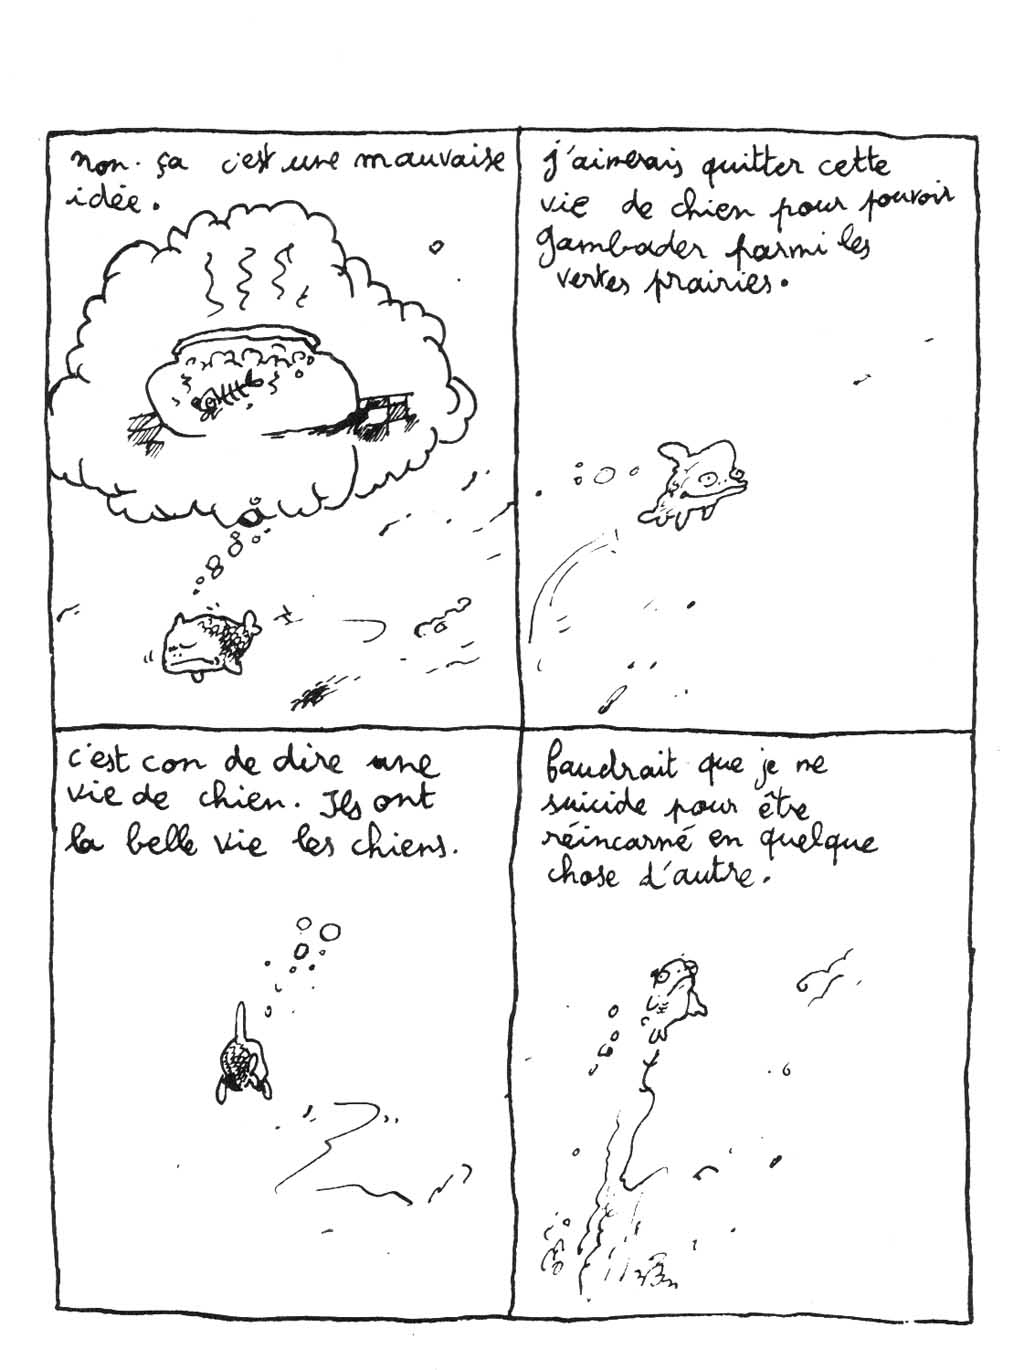 non. ça c'est une mauvaise
idée.
j'aimerais quitter cette
vie de chien pour pouvoir
gambader parmi les
vertes prairies.
c'est con de dire une
vie de chien. Ils ont
la belle vie les chiens.
faudrait que je me
suicide pour être
réincarné en quelque
chose d'autre.